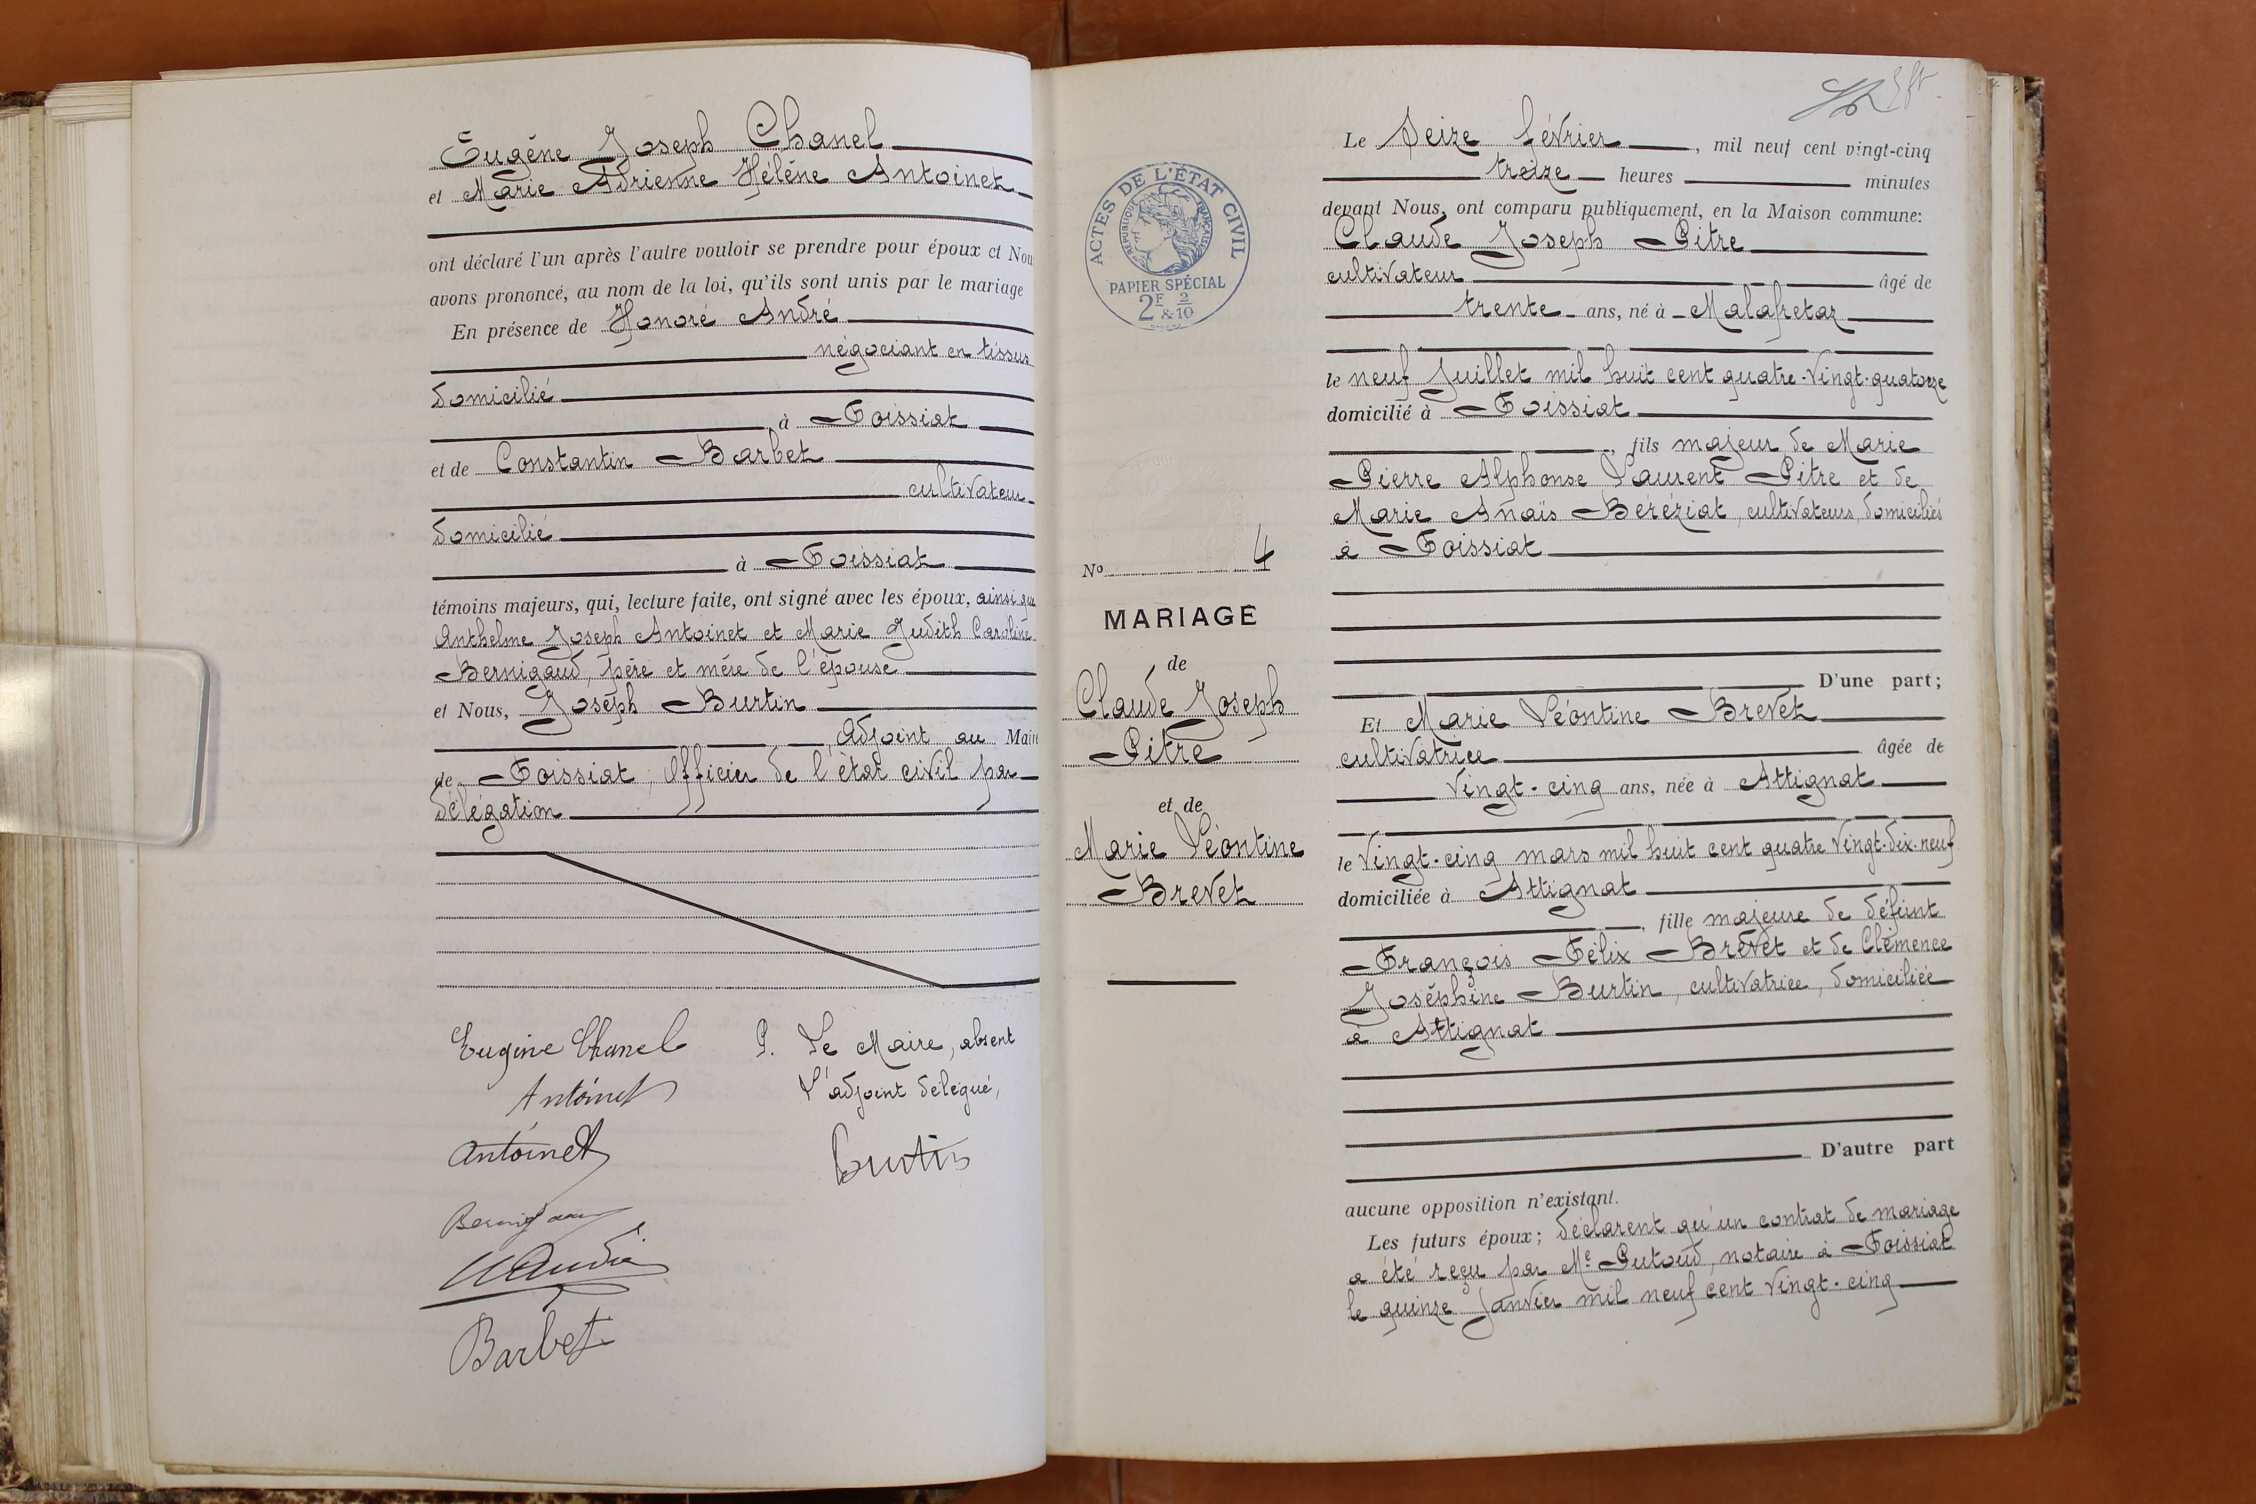 Eugène Joseph Chanel
et Marie Adrienne Hélène Antoinet
ont déclaré l'un après l'autre vouloir se prendre pour époux et Nou
avons prononcé, au nom de la loi, qu'ils sont unis par le mariage
En présence de Honoré André
négociant en tissus
domicilié
à Foissiat
et de Constantin Barbet
cultivateur
domicilié
à Foissiat
témoins majeurs, qui, lecture faite, ont signé avec les époux, ainsi que
Anthelme Joseph Antoinet et Marie Judith Caroline
Bernigaud, père et mère de l'épouse
et Nous, Joseph Burtin
Adjoint au Maire
de Foissiat, Officier de l'état civil par
délégation
Eugène Chanel
P. Le Maire, absent
Antoinet
L'adjoint délégué,
Antoinet
Burtin
Barbet
ACTES DE L'ÉTAT CIVIL
RÉPUBLIQUE FRANÇAISE
PAPIER SPÉCIAL
2F & 2/10
No 4
MARIAGE
de
Claude Joseph
Pitre
et de
Marie Léontine
Brevet
Le Seize février, mil neuf cent vingt-cinq
treize heures minutes
devant Nous, ont comparu publiquement, en la Maison commune:
Claude Joseph Pitre
cultivateur âgé de
trente ans, né à Malafretaz
le neuf Juillet mil huit cent quatre-vingt-quatorze
domicilié à Foissiat
, fils majeur de Marie
Pierre Alphonse Laurent Pitre et de
Marie Anaïs Béréziat, cultivateurs, domiciliés
à Foissiat
D'une part;
Et Marie Léontine Brevet
cultivatrice âgée de
vingt-cinq ans, née à Attignat
le vingt-cinq mars mil huit cent quatre vingt-dix-neuf
domiciliée à Attignat
, fille majeure de défunt
François Félix Brevet et de Clémence
Joséphine Burtin, cultivatrice, domiciliée
à Attignat
D'autre part
aucune opposition n'existant.
Les futurs époux; déclarent qu'un contrat de mariage
a été reçu par Me Putoud, notaire à Foissiat
le quinze Janvier mil neuf cent vingt-cinq